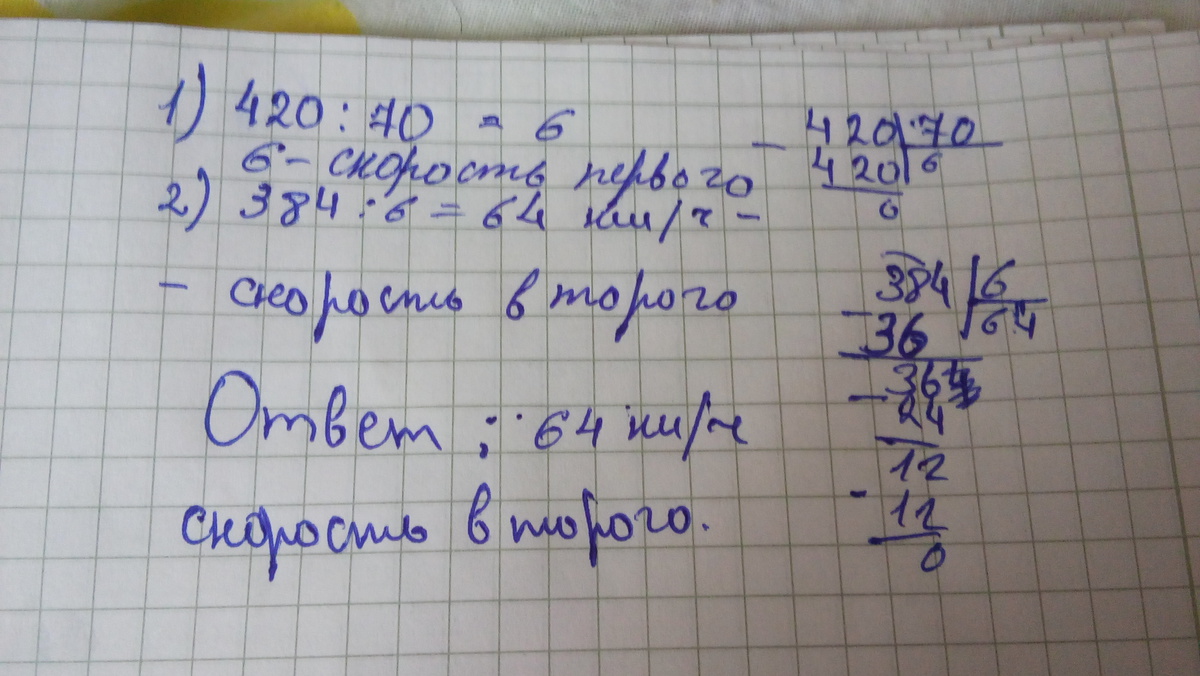 1) 420 : 70 = 6
6 - скорость первого
2) 384 : 6 = 64 км/ч -
- скорость второго
Ответ : 64 км/ч
скорость второго.
- 420 70
420 6
0
- 384 6
36 64
- 36
24
12
- 12
0